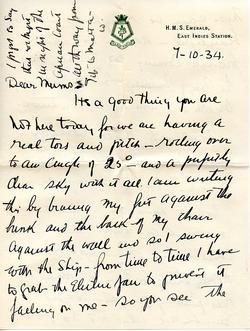 H. M. S. EMERALD,
EAST INDIES STATION.
7-10-34.
I forgot to say
that we kept
in sight of the
African Coast
all the way from
to
Dear Mums
Its a good thing you are
not here today for we are having a
real toss and pitch - rolling over
to an angle of 25° - and a perfectly
clear sky with it all. I am writing
this by bracing my feet against the
bunk and the back of my chair
against the wall and so I swing
with the Ship - from time to time I have
to grab the Electric fan to prevent it
falling on me - so you see the